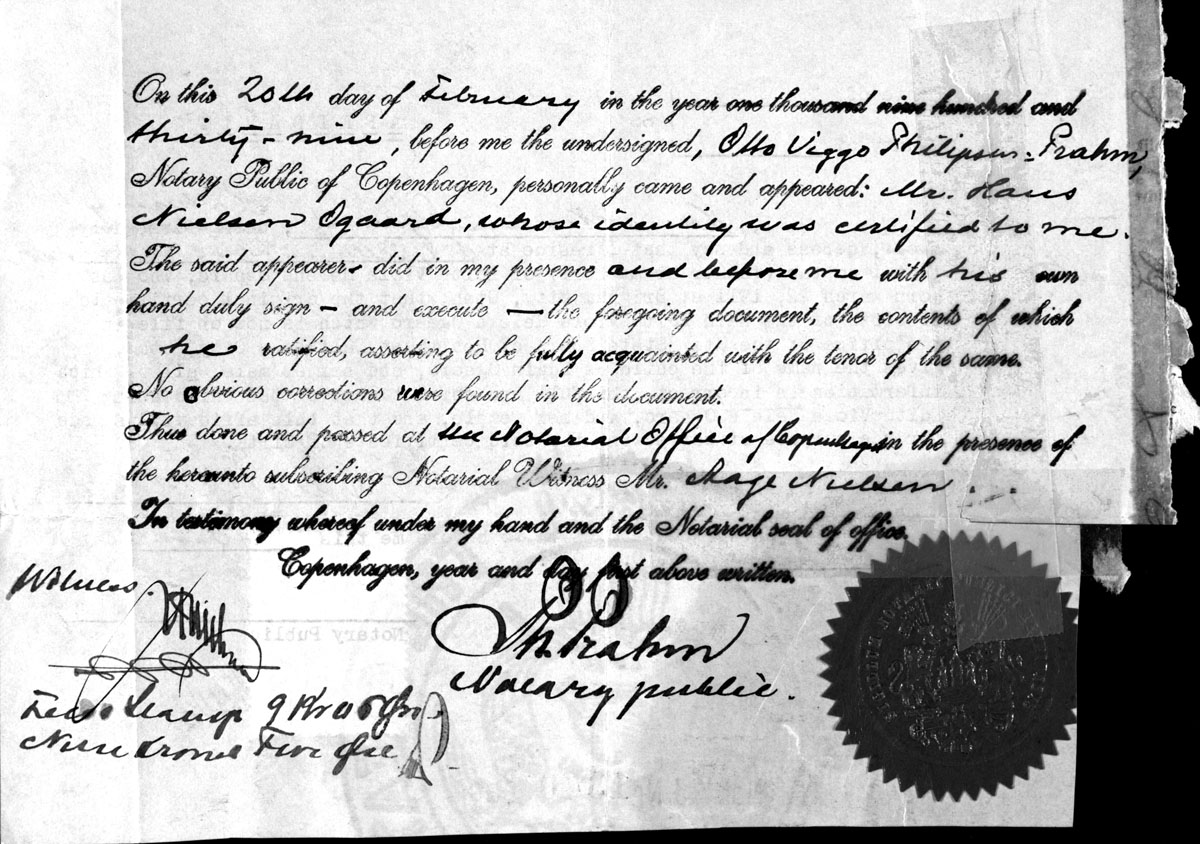 On this 20th day of February in the year one thousand nine hundred and
thirty-nine, before me the undersigned, Otto Viggo Philipsen-Prahm,
Notary Public of Copenhagen, personally came and appeared: Mr. Hans
Nielsen Ogaard, whose identity was certified to me.
The said appearer- did in my presence and before me with his own
hand duly sign - and execute - the foregoing document, the contents of which
he ratified, asserting to be fully acquainted with the tenor of the same.
No obvious corrections were found in the document.
Thus done and passed at the Notarial Office of Copenhagen in the presence of
the hereunto subscribing Notarial Witness Mr. Aage Nielsen
In testimony whereof under my hand and the Notarial seal of office.
Copenhagen, year and day first above written.
Witness.
Prahm
Notary public.
Notary Publi
Nine Kroner Five Øre